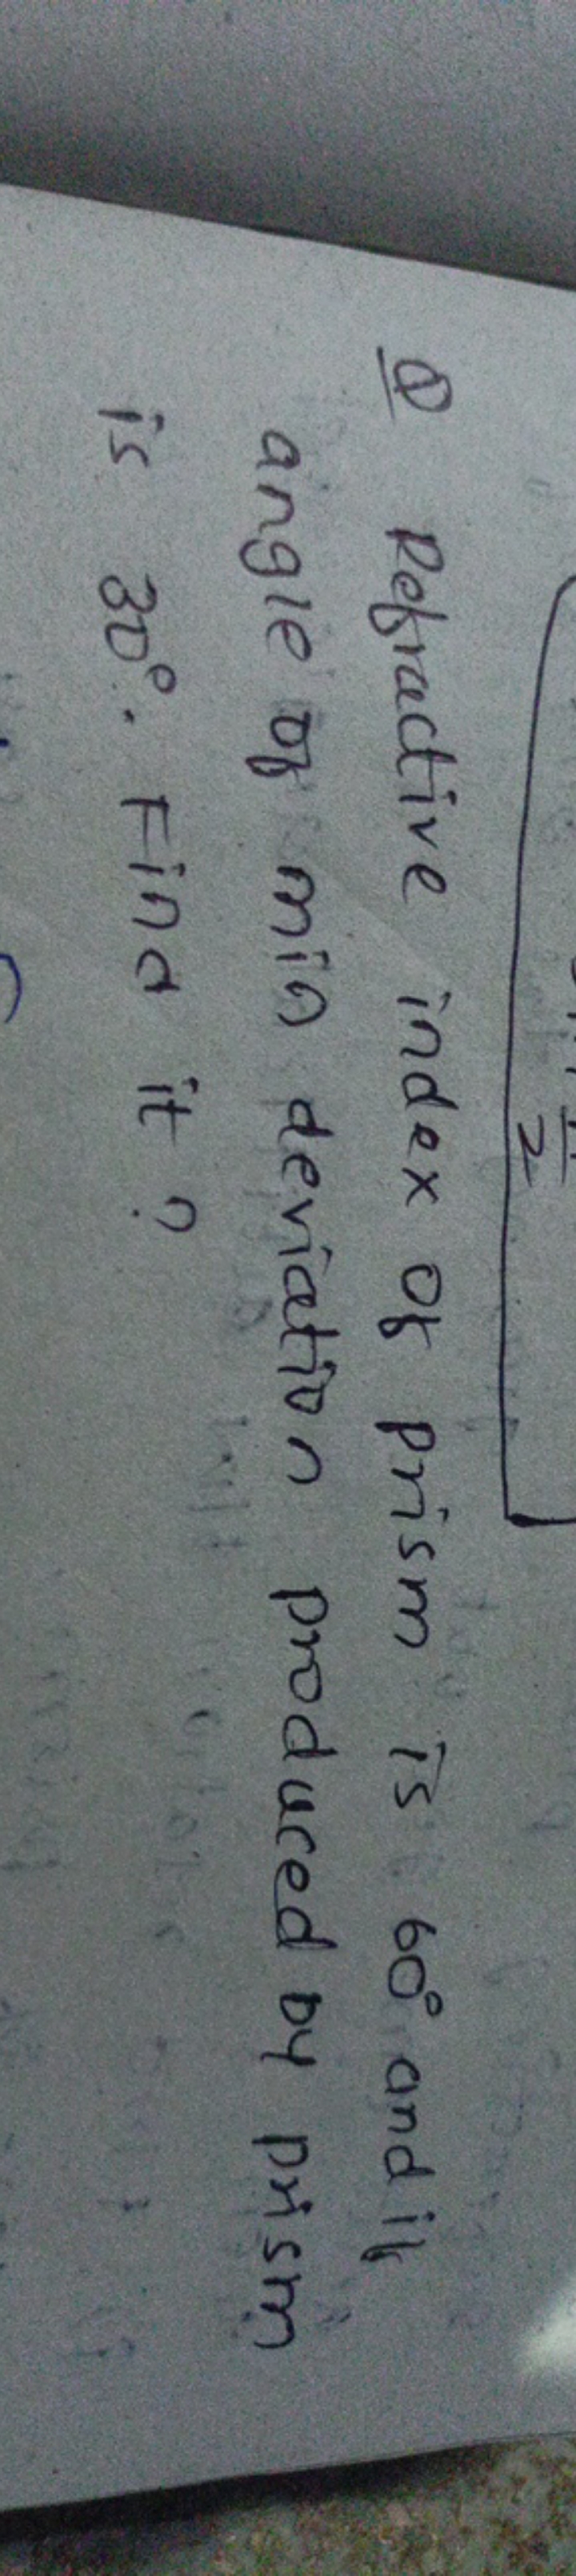 A
2
Q Refractive index of prism is 60° and if
angle of min deviation produced by prism
is 30°. Find it ?